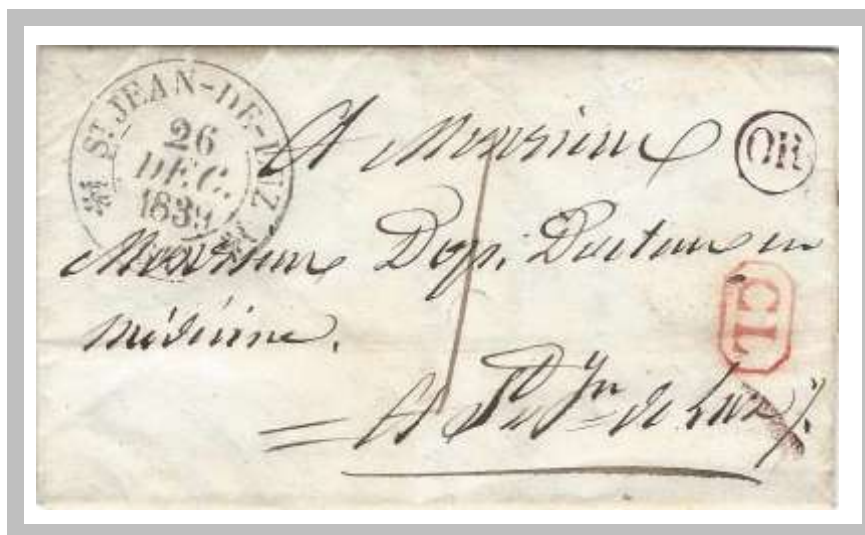 St. JEAN-DE-LUZ
26
DEC.
1839
A Monsieur
OR
Monsieur Docteur en
médecine.
CL
1
A St Jn de Luz